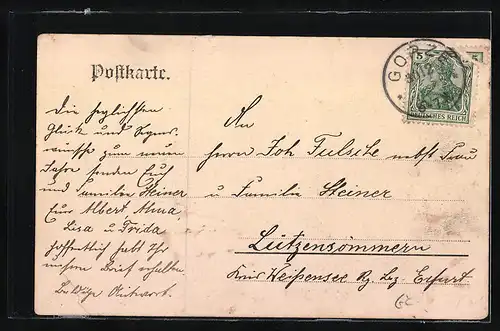 Postkarte.
Die herzlichsten
Glück und Segens-
wünsche zum neuen
Jahre senden Euch
und Familie Steiner
Eure Albert Anna
Lisa u Frida
hoffentlich habt Ihr
unsern Brief erhalten
Baldige Antwort.
GORZE
DEUTSCHES REICH
5
An
Herrn Joh nebst Frau
u Familie Steiner
Lützensömmern
Kreis Weißensee Rg. Bez. Erfurt